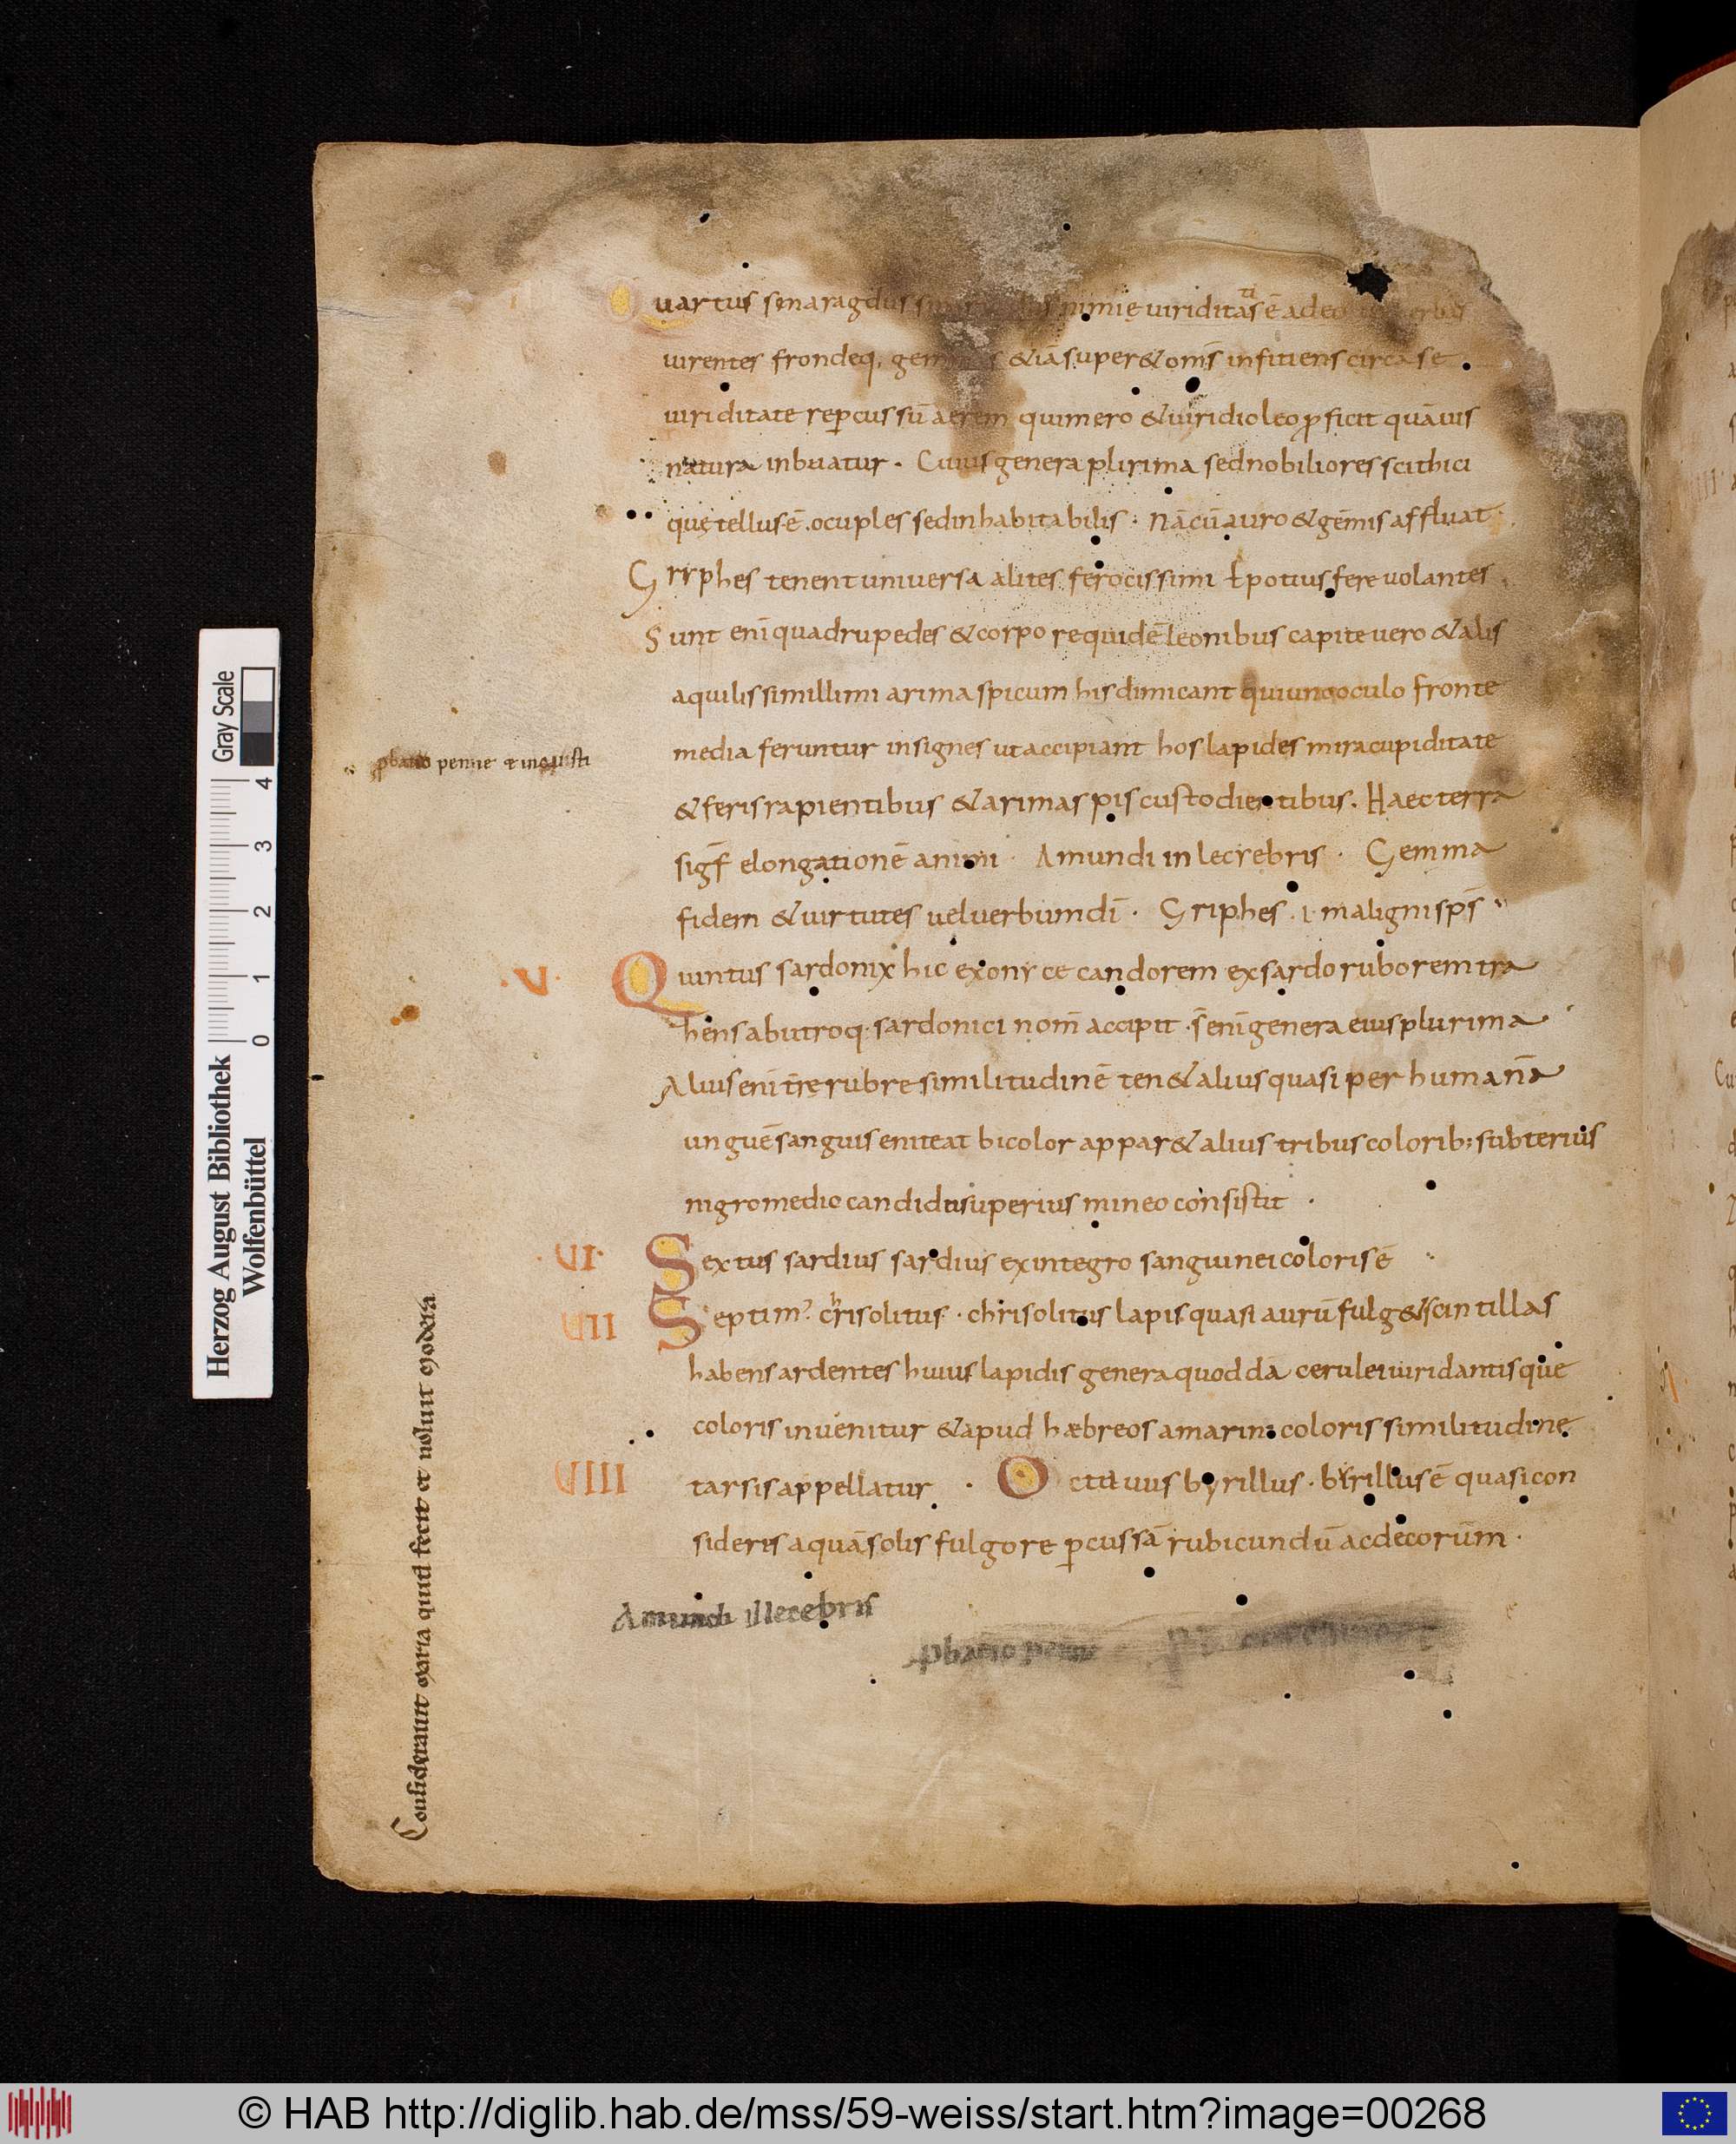 Quartus smaragdus nimię uiriditatis ē adeo ut herbas
uirentes frondeq, gemmas &iā super& om̄s inficiens circa se
uiriditate repcussū aerem qui mero & uiridi oleo ꝓficit quāuis
natura inbuatur. Cuius genera plurima sed nobiliores scithici
quę tellus ē .ocuples sed inhabitabilis. Nā cū auro & gēmis affluat
Gryphes tenent uniuersa alites ferocissimi Epotius fere uolantes
Sunt enī quadrupedes & corpore quidē leonibus capite uero & alis
aquilis simillimi arimaspicum his dimicant qui uno oculo fronte
media feruntur insignes ut accipiant hos lapides mira cupiditate
& feris rapientibus & arimaspis custodientibus. Haec terra
sigf̄ elongationē animi. Amundi inlecrebris. Gemma
fidem & uirtutes uel uerbum dī. Griphes .i. maligni sp̄s
.V. Quintus sardonix hic ex onyce candorem ex sardo ruborem tra
hens ab utroq. sardonici nom̄ accipit. s̄ enī genera eius plurima
Alius enī tr̄e rubre similitudinē ten& alius quasi per humanā
unguē sanguis eniteat bicolor appar& alius tribus colorib; subterius
nigro medio candidu superius mineo consistit.
.VI. Sextus sardius sardius ex integro sanguinei coloris ē
VII Septim' chrisolitus. chrisolitus lapis quasi aurū fulg& scintillas
habens ardentes huius lapidis genera quoddā cerulei uiridantisque
coloris inuenitur & apud hæbreos a marini coloris similitudine
tarsis appellatur. VIII Octauus byrillus. byrillus ē quasi con
sideris aquā solis fulgore pcussā rubicundū ac decorum.
Amundi illecebris
ꝓbatio penne
ꝓbatio penne
Considerauit maria quid fecit et uoluit
Gray Scale
0 1 2 3 4
Herzog August Bibliothek
Wolfenbüttel
© HAB http://diglib.hab.de/mss/59-weiss/start.htm?image=00268